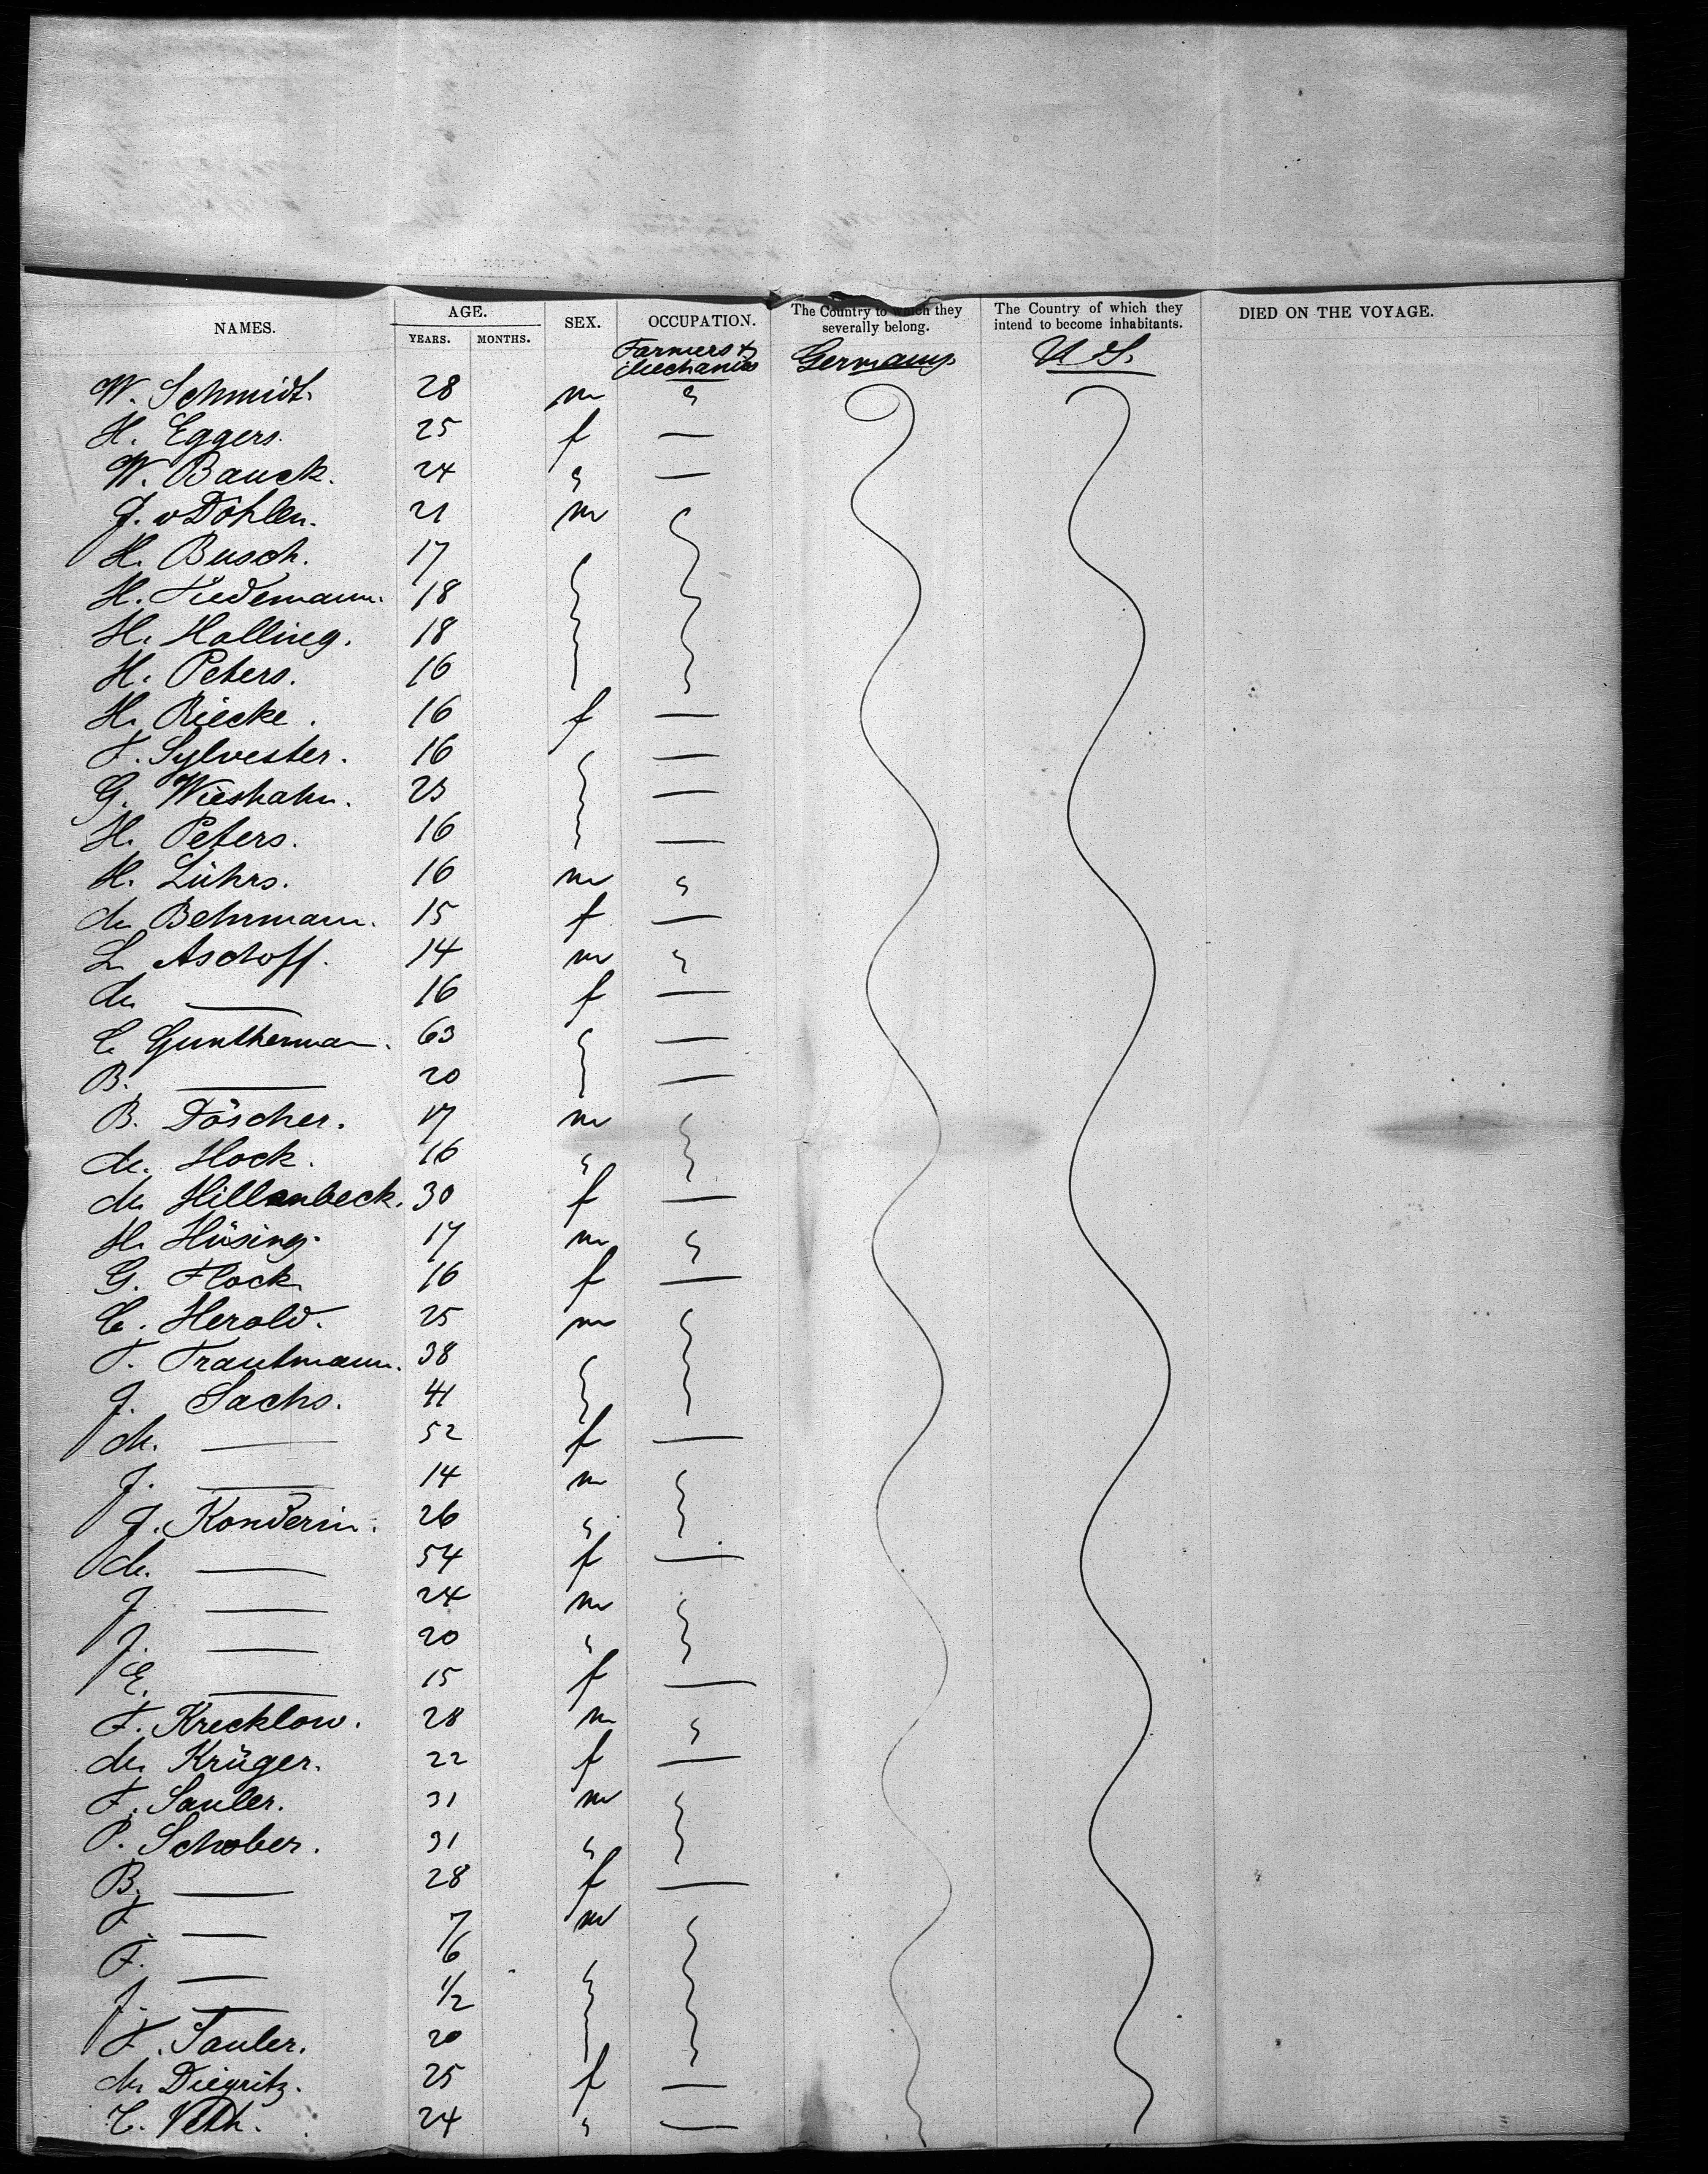 NAMES. AGE. SEX. OCCUPATION. The Country to which they severally belong. The Country of which they intend to become inhabitants. DIED ON THE VOYAGE.
YEARS. MONTHS.
Farmers & Mechanics Germany. U S.
W. Schmidt. 28 m "
H. Eggers. 25 f —
W. Bauck. 24 " —
J. v Döhlen. 21 m
H. Busch. 17
H. Tiedemann. 18
H. Halling. 18
H. Peters. 16
H. Riecke. 16 f —
F. Sylvester. 16 —
G. Wieshahn. 23 —
H. Peters. 16 —
H. Lührs. 16 m "
M. Behrmann. 15 f —
L. Aschoff. 14 m "
M. — 16 f —
C. Guntherman. 63 —
B. — 20 —
B. Döscher. 17 m
M. Hock. 16 "
M. Hillenbeck. 30 f —
H. Hüsing. 17 m "
G. Flock 16 f —
C. Herold. 25 m
T. Trautmann. 38
J. Sachs. 41
M. — 52 f —
J. — 14 m
J. Konderin. 26 "
M. — 54 f —
J. — 24 m
J. — 20 "
E. — 15 f —
F. Krecklow. 28 m "
M. Krüger. 22 f —
F. Sauler. 31 m
P. Schober. 31 "
B. — 28 f —
F. — 7 m
F. — 6
J. — 1/2
F. Sauler. 20
M. Diegritz. 25 f —
C. Veth. 24 " —